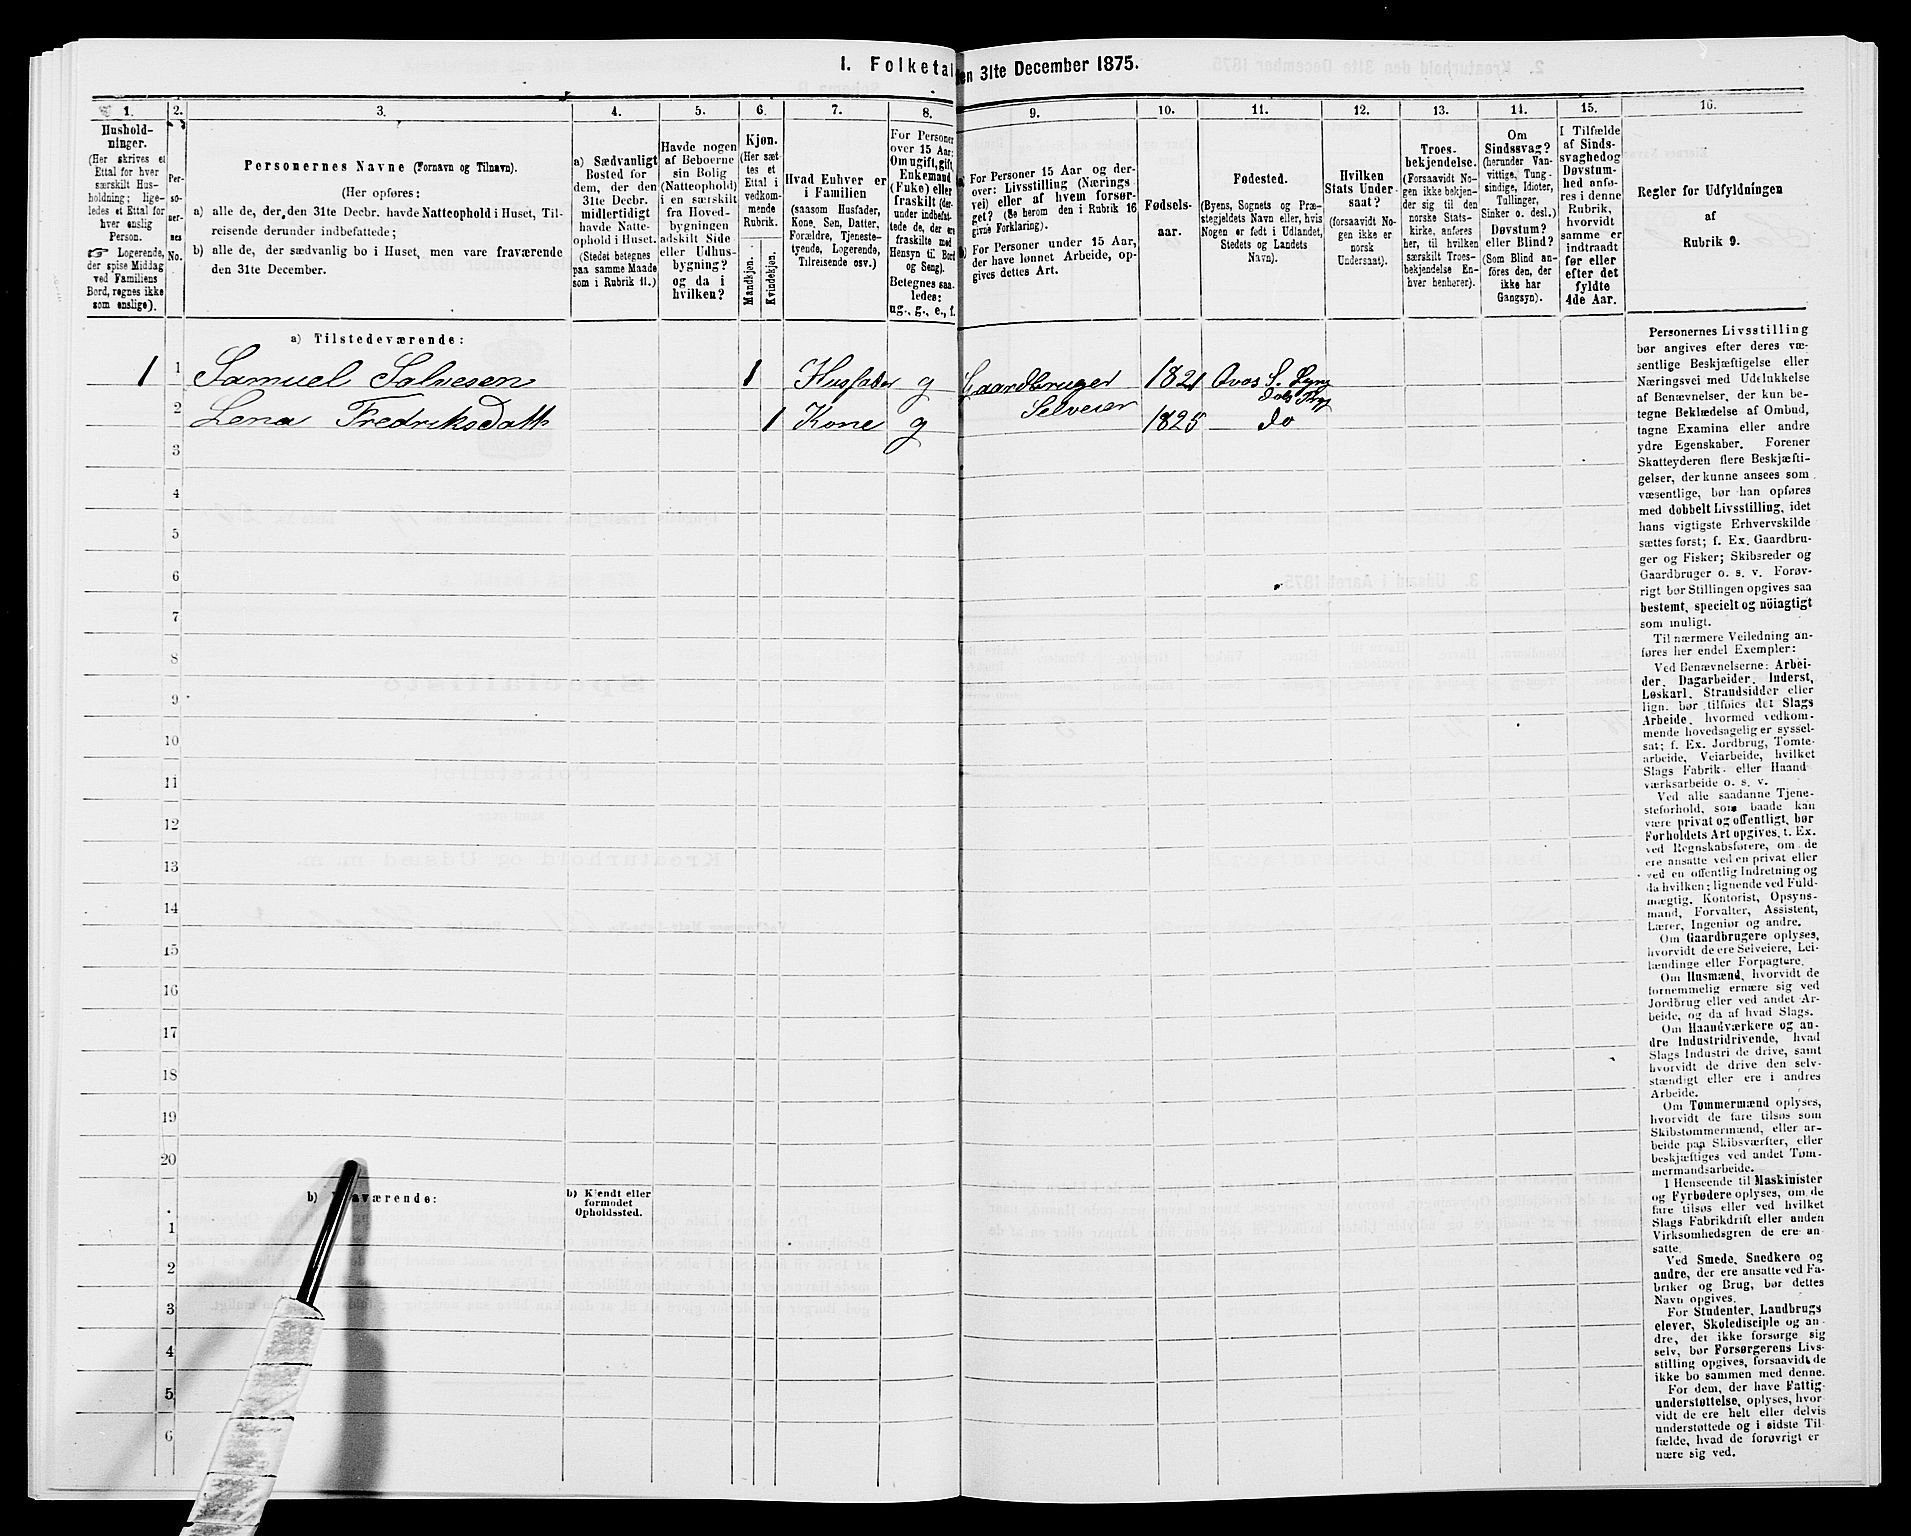 I. Folketal
en 31te December 1875.
1.
2.
3.
4.
5.
6.
7.
8.
9.
10.
11.
12.
13.
14.
15.
16.
Hushold-
ninger.
(Her skrives et
Ettal for hver
særskilt Hus-
holdning; lige-
ledes et Ettal for
hver enslig
Person.
☞ Logerende,
der spise Middag
ved Familiens
Bord, regnes ikke
som enslige).
Per-
so-
ner-
nes
No.
Personernes Navne (Fornavn og Tilnavn).
(Her opføres:
a) alle de, der den 31te Decbr. havde Natteophold i Huset, Til-
reisende derunder indbefattede;
b) alle de, der sædvanlig bo i Huset, men vare fraværende
den 31te December.
a) Sædvanligt
Bosted for
dem, der den
31te Decbr.
midlertidigt
havde Natte-
ophold i Huset.
(Stedet betegnes
paa samme Maade
som i Rubrik 11.)
Havde nogen
af Beboerne
sin Bolig
(Natteophold)
i en særskilt
fra Hoved-
bygningen
adskilt Side
eller Udhus-
bygning?
og da i
hvilken?
Kjøn.
(Her sæt
tes et
Ettal i
vedkom-
mende
Rubrik.
Mandkjøn.
Kvindekjøn.
Hvad Enhver er
i Familien
(saasom Husfader,
Kone, Søn, Datter,
Forældre, Tjeneste-
tyende, Logerende,
Tilreisende osv.)
For Personer
over 15 Aar:
Om ugift, gift,
Enkemand
(Fuke) eller
fraskilt (der-
under indbefat-
tede de, der ere
fraskilte med
Hensyn til Bord
og Seng).
Betegnes saa-
ledes:
ug., g., e., f.
a) For Personer 15 Aar og der-
over: Livsstilling (Nærings
vei) eller af hvem forsør-
get? (Se herom den i Rubrik 16
givne Forklaring).
b) For Personer under 15 Aar,
der have lønnet Arbeide, op-
gives dettes Art.
Fødsels-
aar.
Fødested.
(Byens, Sognets og Præ-
stegjeldets Navn eller, hvis
Nogen er født i Udlandet,
Stedets og Landets
Navn).
Hvilken
Stats Under-
saat?
(forsaavidt No-
gen ikke er
norsk
Undersaat).
Troes-
bekjendelse.
(Forsaavidt No-
gen ikke bekjen-
der sig til den
norske Stats-
kirke, anføres
her, til hvilken
særskilt Troes-
bekjendelse En-
hver henhører).
Om
Sindssvag?
(herunder Van-
vittige, Tung-
sindige, Idioter,
Tullinger,
Sinker o. desl.)
Døvstum?
eller Blind?
(Som Blind an-
føres den, der
ikke har
Gangsyn).
I Tilfælde
af Sinds-
svaghed og
Døvstum-
hed anfø-
res i denne
Rubrik,
hvorvidt
samme er
indtraadt
før eller
efter det
fyldte
4de Aar.
Regler for Udfyldningen
af
Rubrik 9.
a) Tilstedeværende:
1 1 Samuel Salvesen 1 Husfader g Gaardbruger 1821 Qvos S. Lyng
Selveier dals Prg
2 Lena Fredriksdatt 1 Kone g 1825 do
3
4
5
6
7
8
9
10
11
12
13
14
15
16
17
18
19
20
b) Fraværende:
b) Kjendt eller
formodet
Opholdssted.
1
2
3
4
5
6
Personernes Livsstilling
bør angives efter deres væ-
sentlige Beskjæftigelse eller
Næringsvei med Udelukkelse
af Benævnelser, der kun be-
tegne Beklædelse af Ombud,
tagne Examina eller andre
ydre Egenskaber. Forener
Skatteyderen flere Beskjæfti-
gelser, der kunne ansees som
væsentlige, bør han opføres
med dobbelt Livsstilling, idet
hans vigtigste Erhvervskilde
sættes først; f. Ex. Gaardbru-
ger og Fisker; Skibsreder og
Gaardbruger o. s. v. Forøv-
rigt bør Stillingen opgives saa
bestemt, specielt og nöiagtigt
som muligt.
Til nærmere Veiledning an-
føres her endel Exempler:
Ved Benævnelserne: Arbei-
der, Dagarbeider, Inderst,
Løskarl, Strandsidder eller
lign. bør tilføies det Slags
Arbeide, hvormed vedkom-
mende hovedsagelig er syssel-
sat; f. Ex. Jordbrug, Tomte-
arbeide, Veiarbeide, hvilket
Slags Fabrik- eller Haand
værksarbeide o. s. v.
Ved alle saadanne Tjene-
steforhold, som baade kan
være privat og offentligt, bør
Forholdets Art opgives, t. Ex.
ved Regnskabsførere, om de
ere ansatte ved en privat eller
ved en offentlig Indretning og
da hvilken; lignende ved Fuld-
mægtig, Kontorist, Opsyns-
mand, Forvalter, Assistent,
Lærer, Ingeniør og andre.
Om Gaardbrugere oplyses,
hvorvidt de ere Selveiere, Lei-
lændinge eller Forpagtere.
Om Husmænd, hvorvidt de
fornemmelig ernære sig ved
Jordbrug eller ved andet Ar-
beide, og da af hvad Slags.
Om Haandværkere og an-
dre Industridrivende, hvad
Slags Industri de drive, samt
hvorvidt de drive den selv-
stændigt eller ere i andres
Arbeide.
Om Tømmermænd oplyses,
hvorvidt de fare tilsøs som
Skibstømmermænd, eller ar-
beide paa Skibsværfter, eller
beskjæftiges ved andet Tøm-
mermandsarbeide.
I Henseende til Maskinister
og Fyrbødere oplyses, om de
fare tilsøs eller ved hvilket
Slags Fabrikdrift eller anden
Virksomhedsgren de ere an-
satte.
Ved Smede, Snedkere og
andre, der ere ansatte ved Fa-
briker og Brug, bør dettes
Navn opgives.
For Studenter, Landbrugs
elever, Skoledisciple og an-
dre, det ikke forsørge sig
selv, bør Forsørgerens Livs-
stilling opgives, forsaavidt de
ikke bo sammen med denne.
For dem, der have Fattig-
understøttelse, oplyses, hvor-
vidt de ere helt eller delvis
understøttede og i sidste Til-
fælde, hvad de forøvrigt er
nære sig ved.